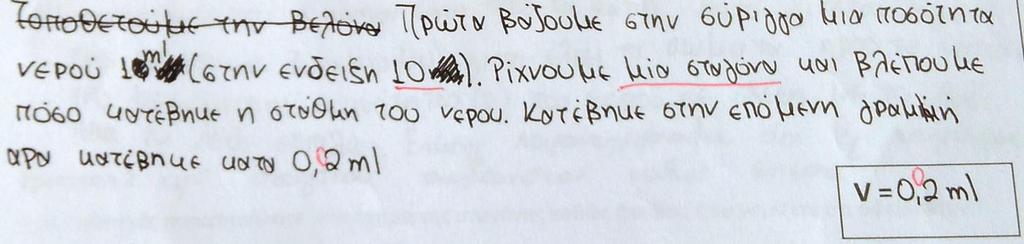 Τοποθετούμε την βελόνα Πρώτα βάζουμε στην σύριγγα μια ποσότητα
νερού 10 ml (στην ενδειξη 10). Ρίχνουμε μία σταγόνα και βλέπουμε
πόσο κατέβηκε η στάθμη του νερου. Κατέβηκε στην επόμενη γραμμή
αρα κατέβηκε κατα 0,2 ml
V = 0,2 ml